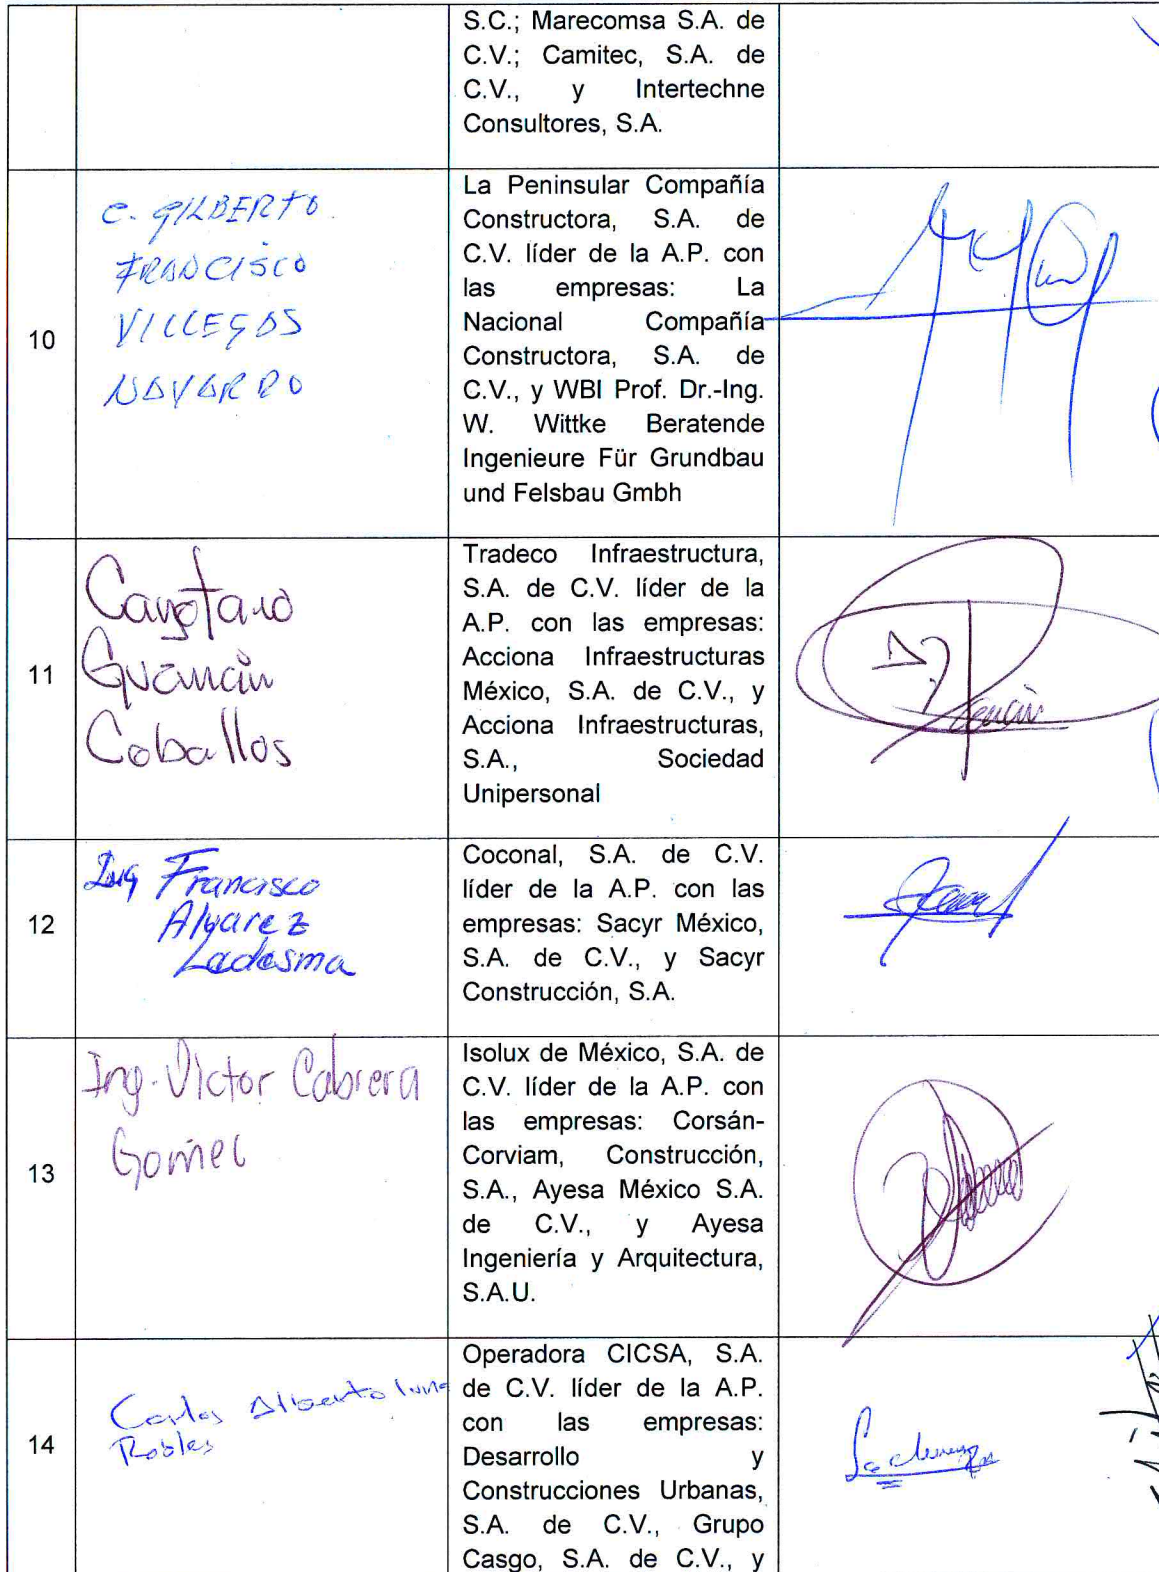 S.C.; Marecomsa S.A. de
C.V.; Camitec, S.A. de
C.V., y Intertechne
Consultores, S.A.
10
C. GILBERTO
FRANCISCO
VILLEGAS
NAVARRO
La Peninsular Compañía
Constructora, S.A. de
C.V. líder de la A.P. con
las empresas: La
Nacional Compañía
Constructora, S.A. de
C.V., y WBI Prof. Dr.-Ing.
W. Wittke Beratende
Ingenieure Für Grundbau
und Felsbau Gmbh
11
Cayetano
Guancin
Ceballos
Tradeco Infraestructura,
S.A. de C.V. líder de la
A.P. con las empresas:
Acciona Infraestructuras
México, S.A. de C.V., y
Acciona Infraestructuras,
S.A., Sociedad
Unipersonal
12
Ing Francisco
Alvarez
Ledesma
Coconal, S.A. de C.V.
líder de la A.P. con las
empresas: Sacyr México,
S.A. de C.V., y Sacyr
Construcción, S.A.
13
Ing. Victor Cabrera
Gomez
Isolux de México, S.A. de
C.V. líder de la A.P. con
las empresas: Corsán-
Corviam, Construcción,
S.A., Ayesa México S.A.
de C.V., y Ayesa
Ingeniería y Arquitectura,
S.A.U.
14
Carlos Alberto Luna
Robles
Operadora CICSA, S.A.
de C.V. líder de la A.P.
con las empresas:
Desarrollo y
Construcciones Urbanas,
S.A. de C.V., Grupo
Casgo, S.A. de C.V., y